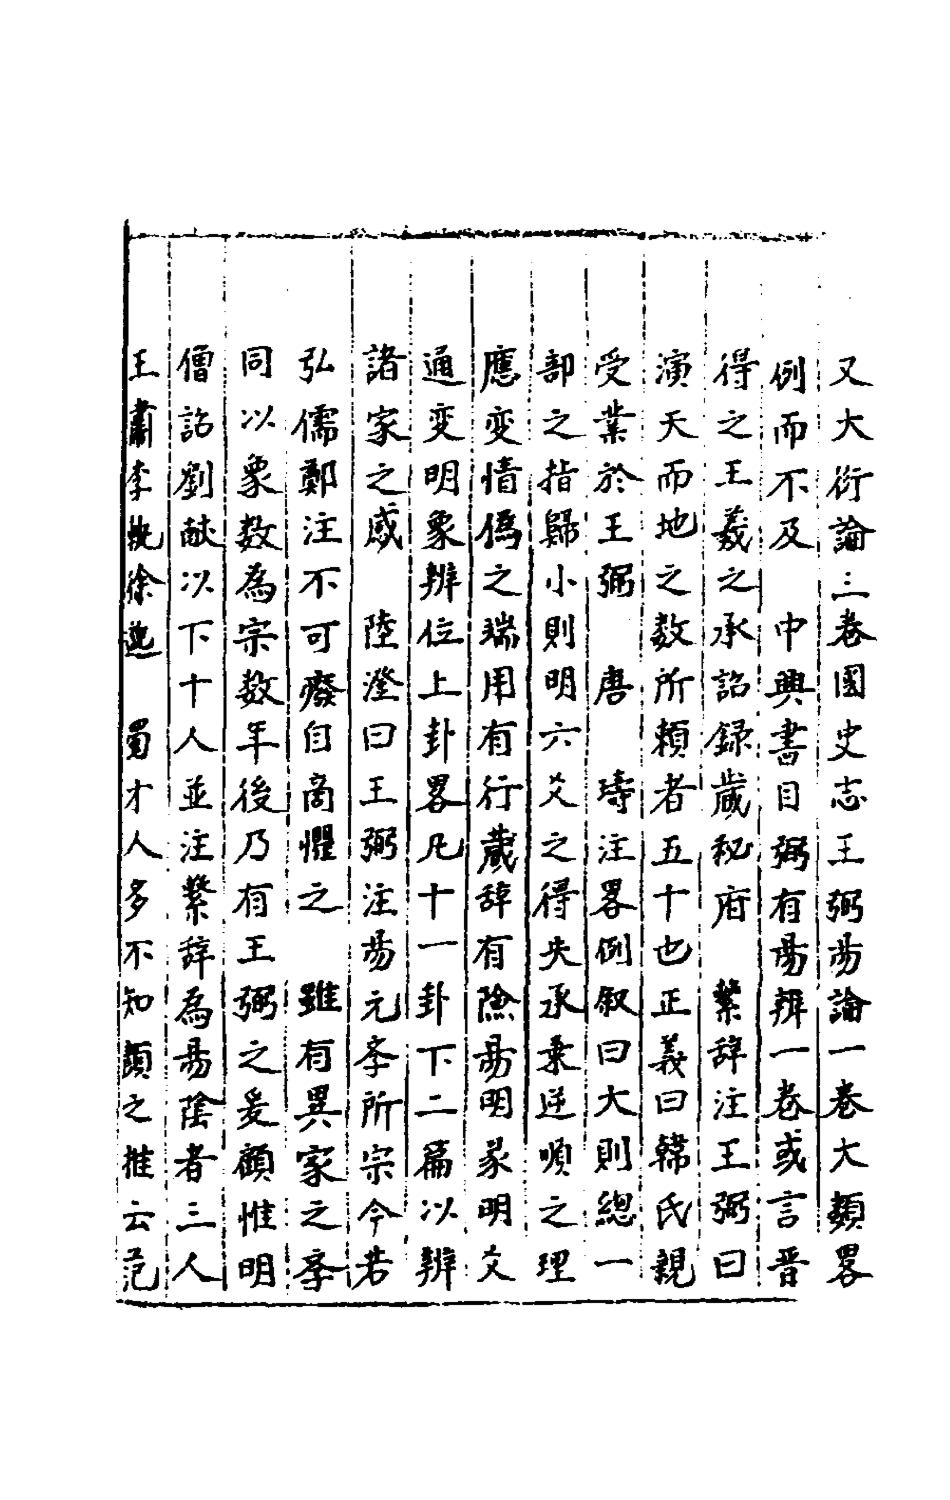 又大衍論三卷國史志王弼昜論一卷大類畧
例而不及　中興書目弼有昜辨一卷或言晉
得之王羲之承詔録蔵秘府　繫辞注王弼曰
演天而地之数所頼者五十也正義曰韓氏親
受業於王弼　唐　璹注畧例叙曰大則總一
部之指歸小則明六爻之得失承乗逆順之理
應变情偽之端用有行蔵辞有險昜明彖明爻
通变明象辨位上卦畧凡十一卦下二篇以辨
諸家之惑　陸澄曰王弼注昜元孝所宗今若
弘儒鄭注不可癈自啇懼之　雖有異家之孝
同以象数為宗数年後乃有王弼之爰顧惟明
僧詔劉献以下十人並注繫辞為昜陰者三人
王肅李軌徐邈　蜀才人多不知顔之推云范